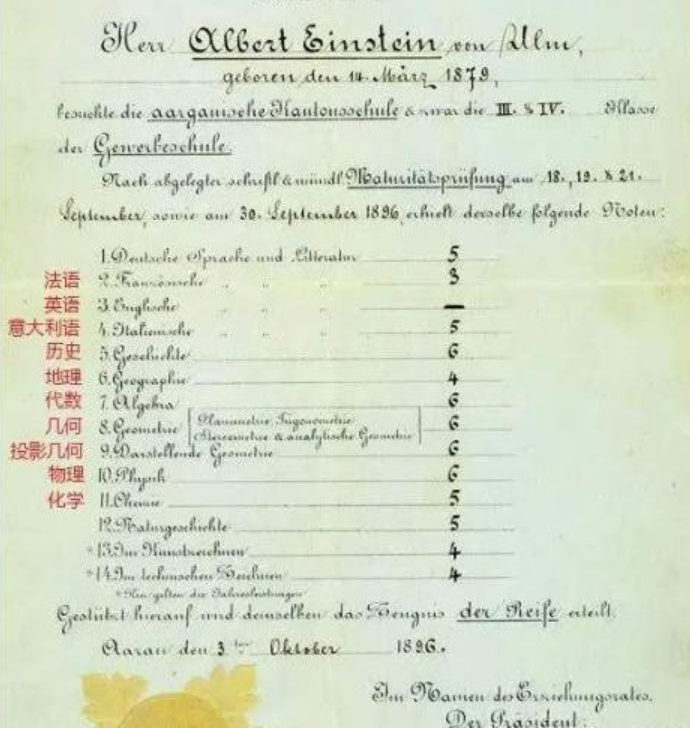 Herr Albert Einstein von Ulm,
geboren den 14. März 1879,
besuchte die aargauische Kantonsschule & zwar die III. & IV. Klasse
der Gewerbeschule.
Nach abgelegter schriftl. & mündl. Maturitätsprüfung am 18., 19. & 21.
September, sowie am 30. September 1896, erhielt derselbe folgende Noten:
1. Deutsche Sprache und Litteratur 5
法语 2. Französische " " " 3
英语 3. Englische " " " —
意大利语 4. Italienische " " " 5
历史 5. Geschichte 6
地理 6. Geographie 4
代数 7. Algebra 6
几何 8. Geometrie [Planimetrie, Trigonometrie 6
Stereometrie & analytische Geometrie]
投影几何 9. Darstellende Geometrie 6
物理 10. Physik 6
化学 11. Chemie 5
12. Naturgeschichte 5
*13. Im Kunstzeichnen 4
*14. Im technischen Zeichnen 4
*Hier gelten die Jahresleistungen
Gestützt hierauf wird demselben das Zeugnis der Reife erteilt.
Aarau den 3ten Oktober 1896.
Im Namen des Erziehungsrates,
Der Präsident: